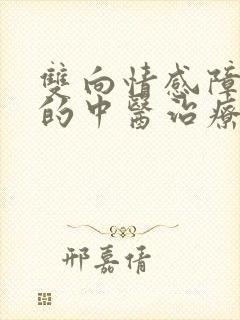 雙向情感障
的中醫治療
邢嘉倩